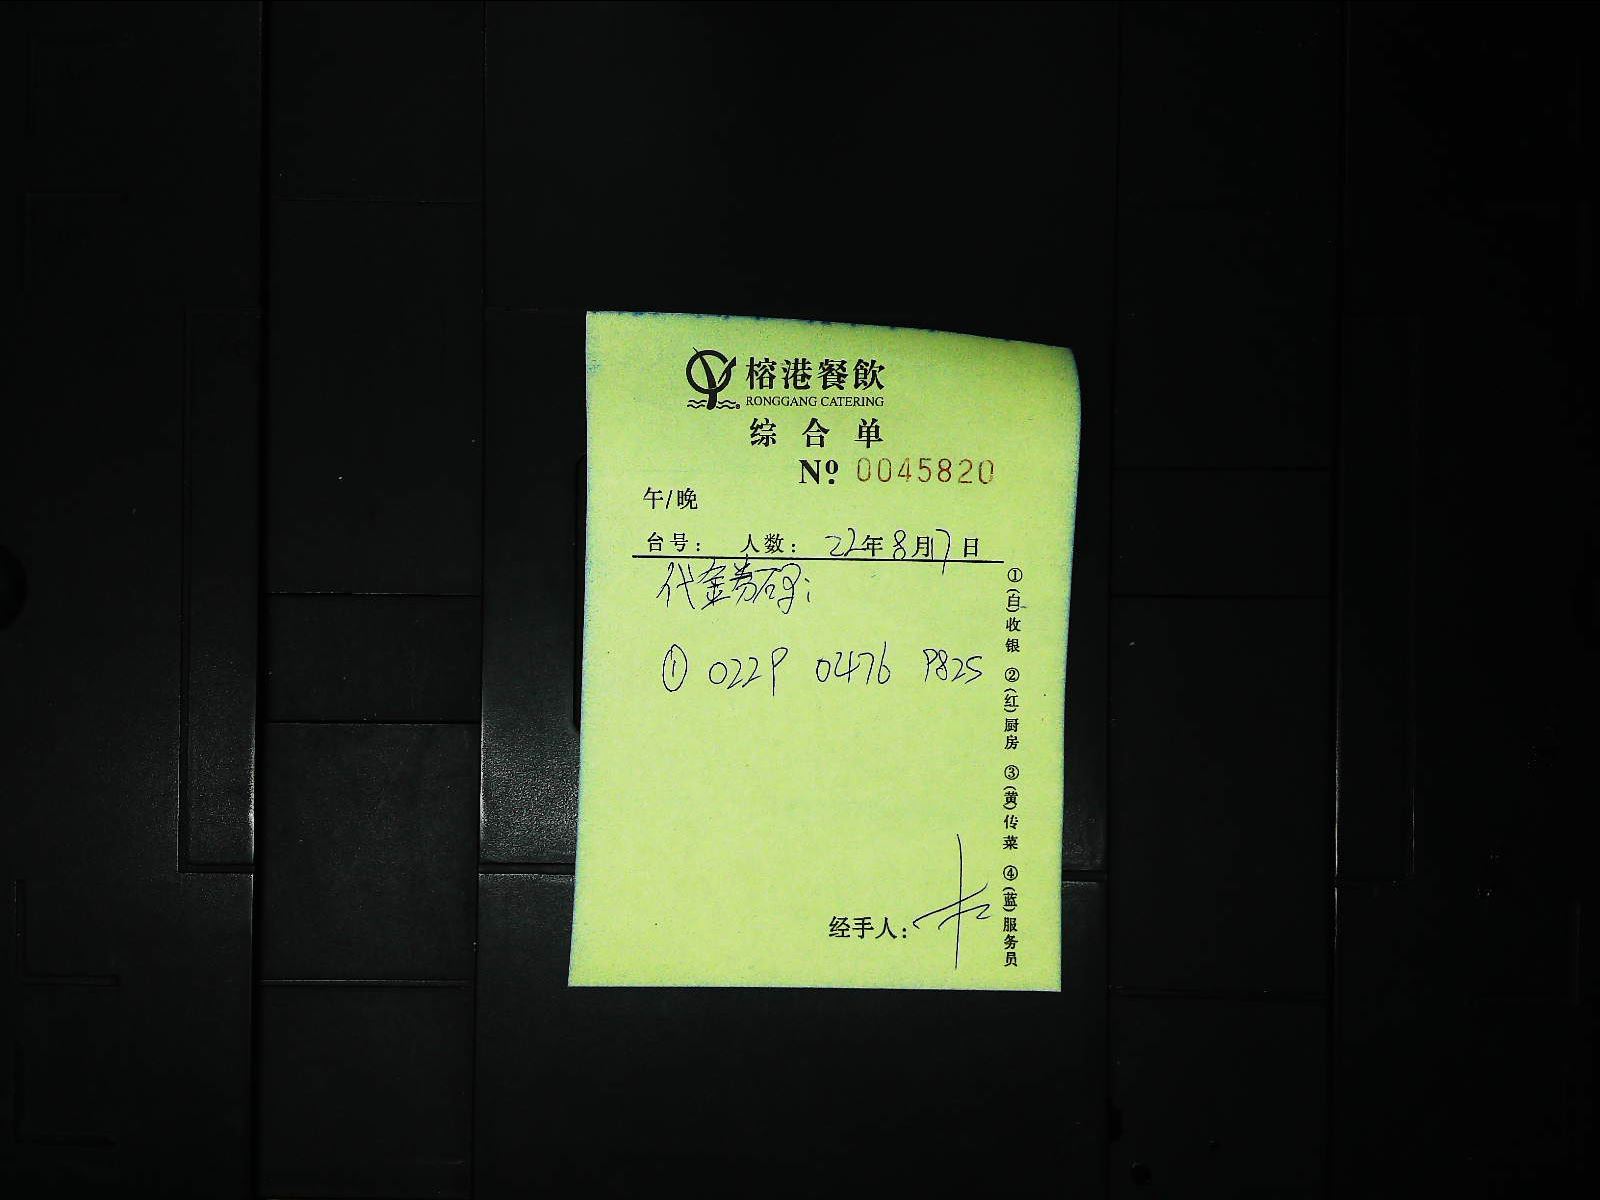 榕港餐飲
RONGGANG CATERING
综合单
Nº 0045820
午/晚
台号： 人数： 22年8月17日
代金券码：
① 0229 0476 9825
经手人：
①(白)收银 ②(红)厨房 ③(黄)传菜 ④(蓝)服务员